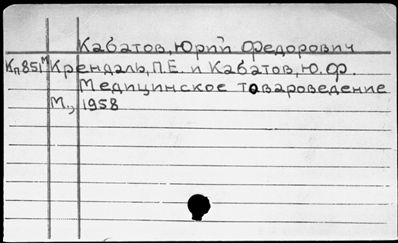 Кабатов, Юрий Федорович
Кп851м Крендаль, П.Е. и Кабатов, Ю.Ф.
Медицинское товароведение
М., 1958